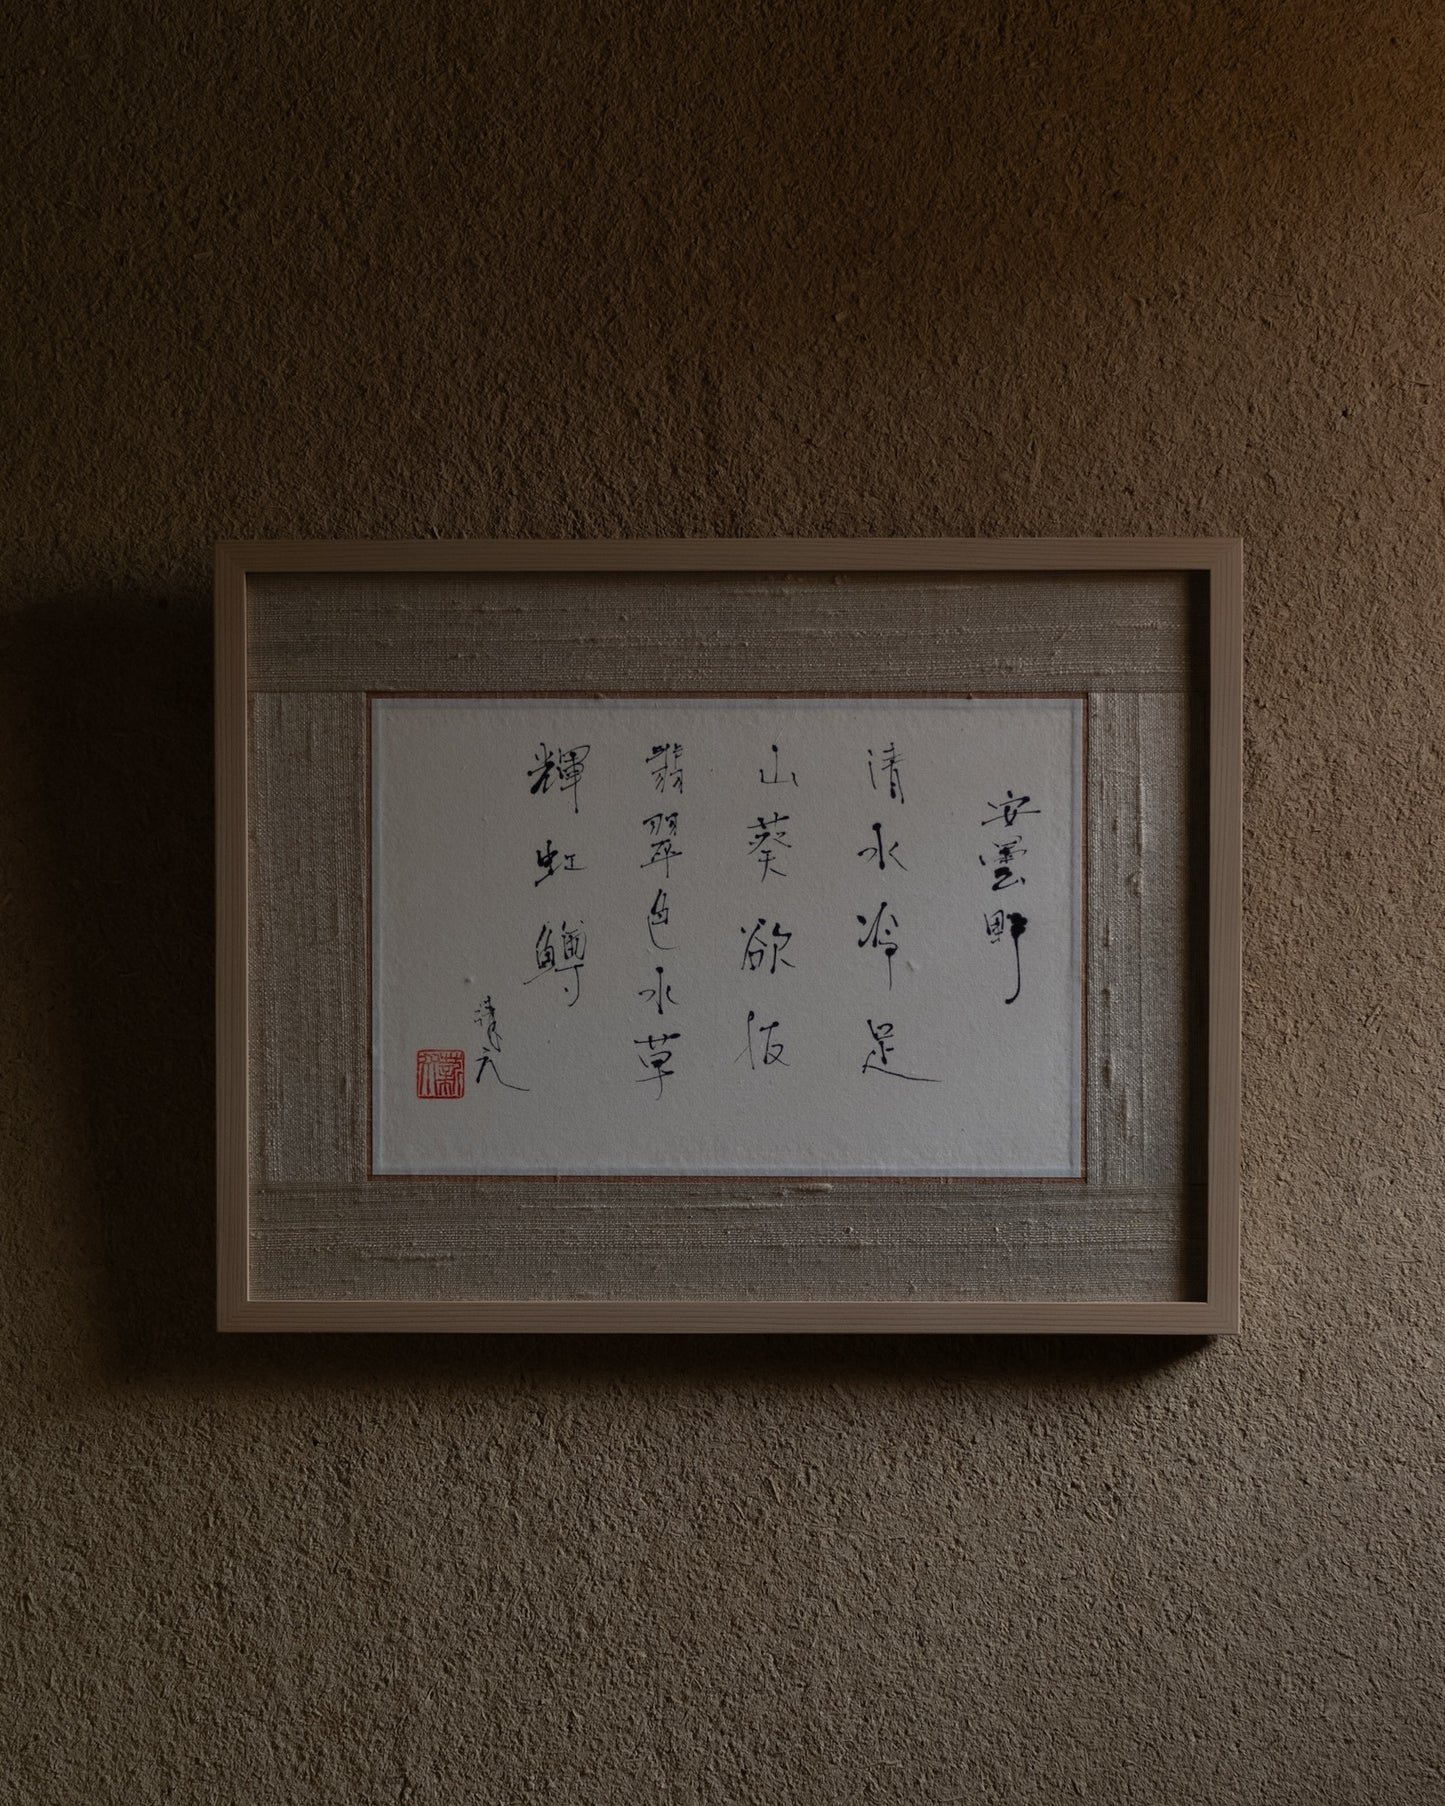 安曇野
清水冷足
山葵欲抜
翡翠色水草
輝虹鱒